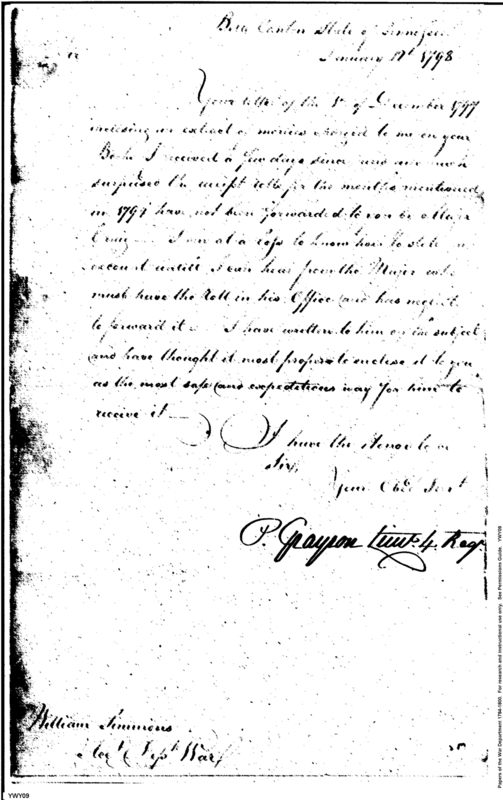 State of Tennessee
January 1798
Your letter of the 1st of December 1797
inclosing an extract of monies charged to me on your
Books I received a few days since and am much
surprised the receipt rolls for the months mentioned
in 1797 have not been forwarded to you by Major
Craig I am at a loss to know how to state
account untill I can hear from the Major who
must have the Roll in his Office and has neglect
to forward it I have written to him on the subject
and have thought it most proper to enclose it to you
as the most safe and expeditious way for him to
receive it
I have the Honor to be
Sir,
Your Obdt Servt
P. Grayson Lieut 4 Reg.
William Simmons
Acct Dept War
YWY09
Papers of the War Department 1784-1800. For research and instructional use only. See Permissions Guide. YWY09